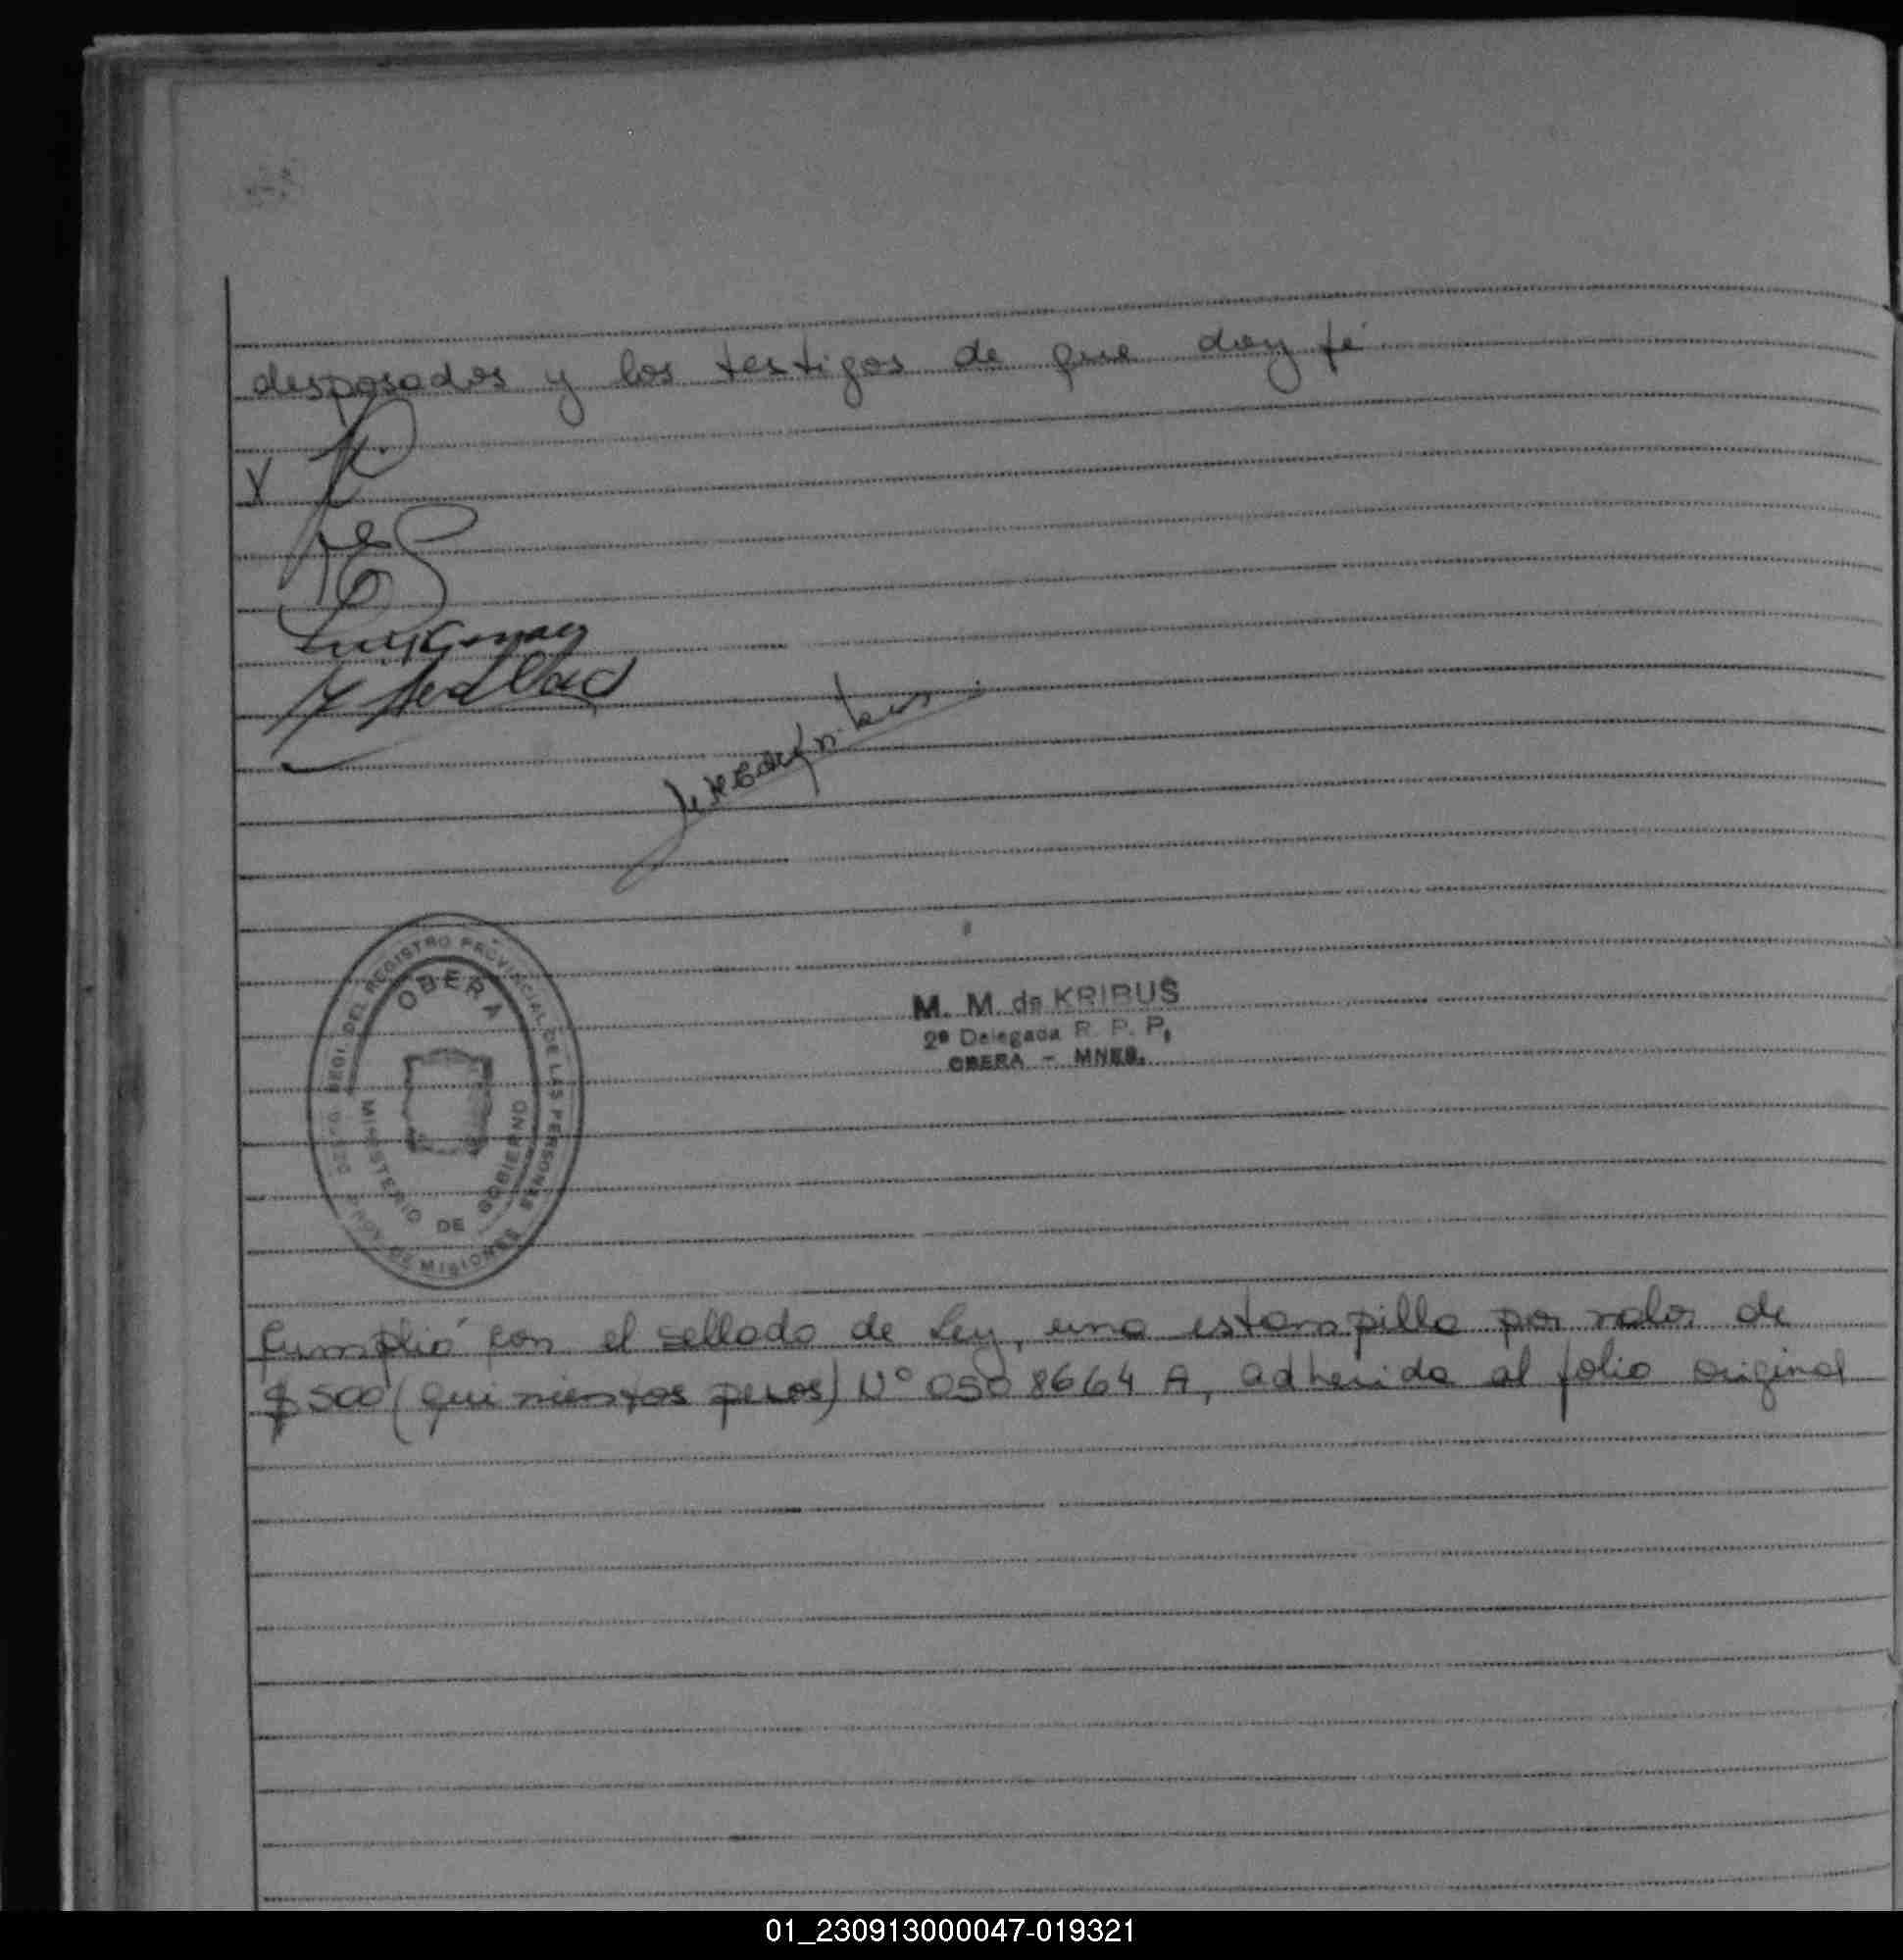 desposados y los testigos de que doy fé
X
OBERA
MINISTERIO DE GOBIERNO
DEL REGISTRO PROVINCIAL DE LAS PERSONAS
PROV. DE MISIONES
M. M. de KRIBUS
2ª Delegada R. P. P,
OBERA - MNES.
Cumplió con el sellado de Ley, una estampilla por valor de
$ 500 (quinientos pesos) Nº 0508664 A, adherida al folio original
01_230913000047-019321